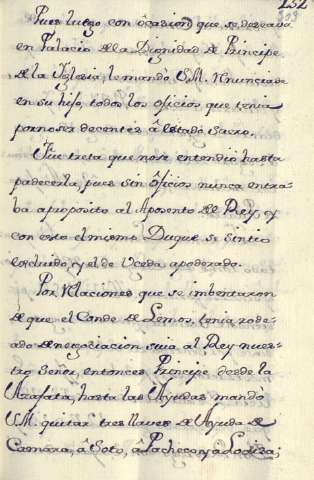 252
303
Pues luego con ôcasion que se deseava
en Palacio de la Dignidad de Principe
de la Yglesia, le mandò S.M. renunciase
en su hijo, todos los oficios que tenia
por no ser decentes â estado sacro.
Fue treta que no se entendiò hasta
padecerla, pues sin ôficios nunca entra-
ba aproposito al Aposento de Rey, y
con esto el mismo Duque se sintio
excluido, y el de Uceda apoderado.
Por relaciones que se imbentaron
de que el Conde de Lemos, tenia rode-
ado de negociacion suia al Rey nues-
tro Señor, entonces Principe desde la
Azafata, hasta las Ayudas mandò
S.M. quitar tres llaves de Ayuda de
Camara, â Soto, â Pacheco, y a Lodiza;